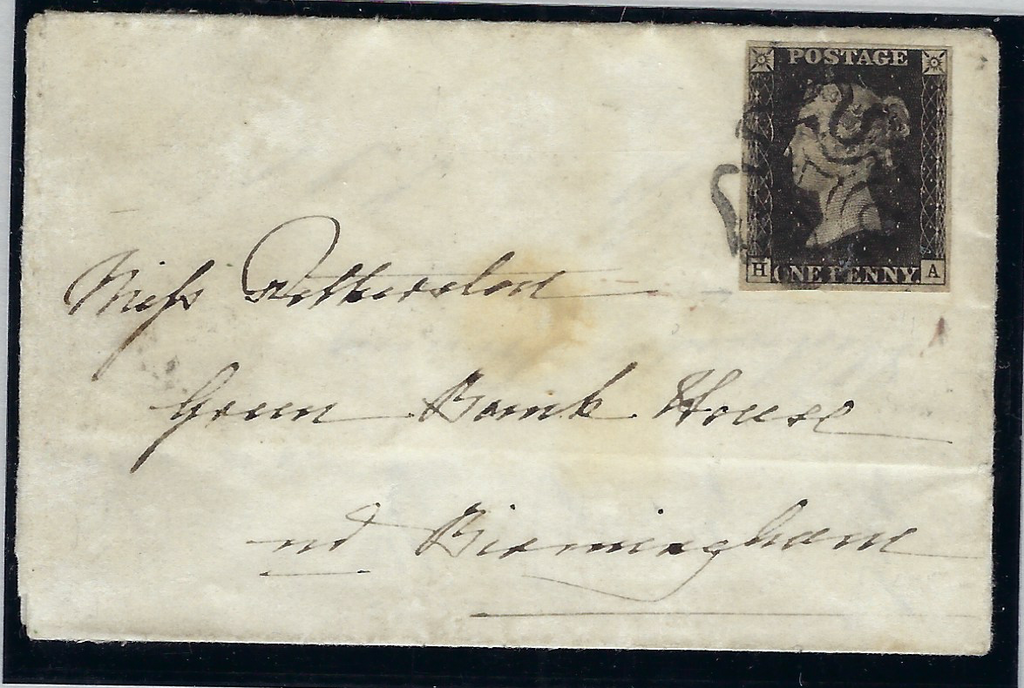 POSTAGE
H ONE PENNY. A
Miss
Green Bank House
nd Birmingham